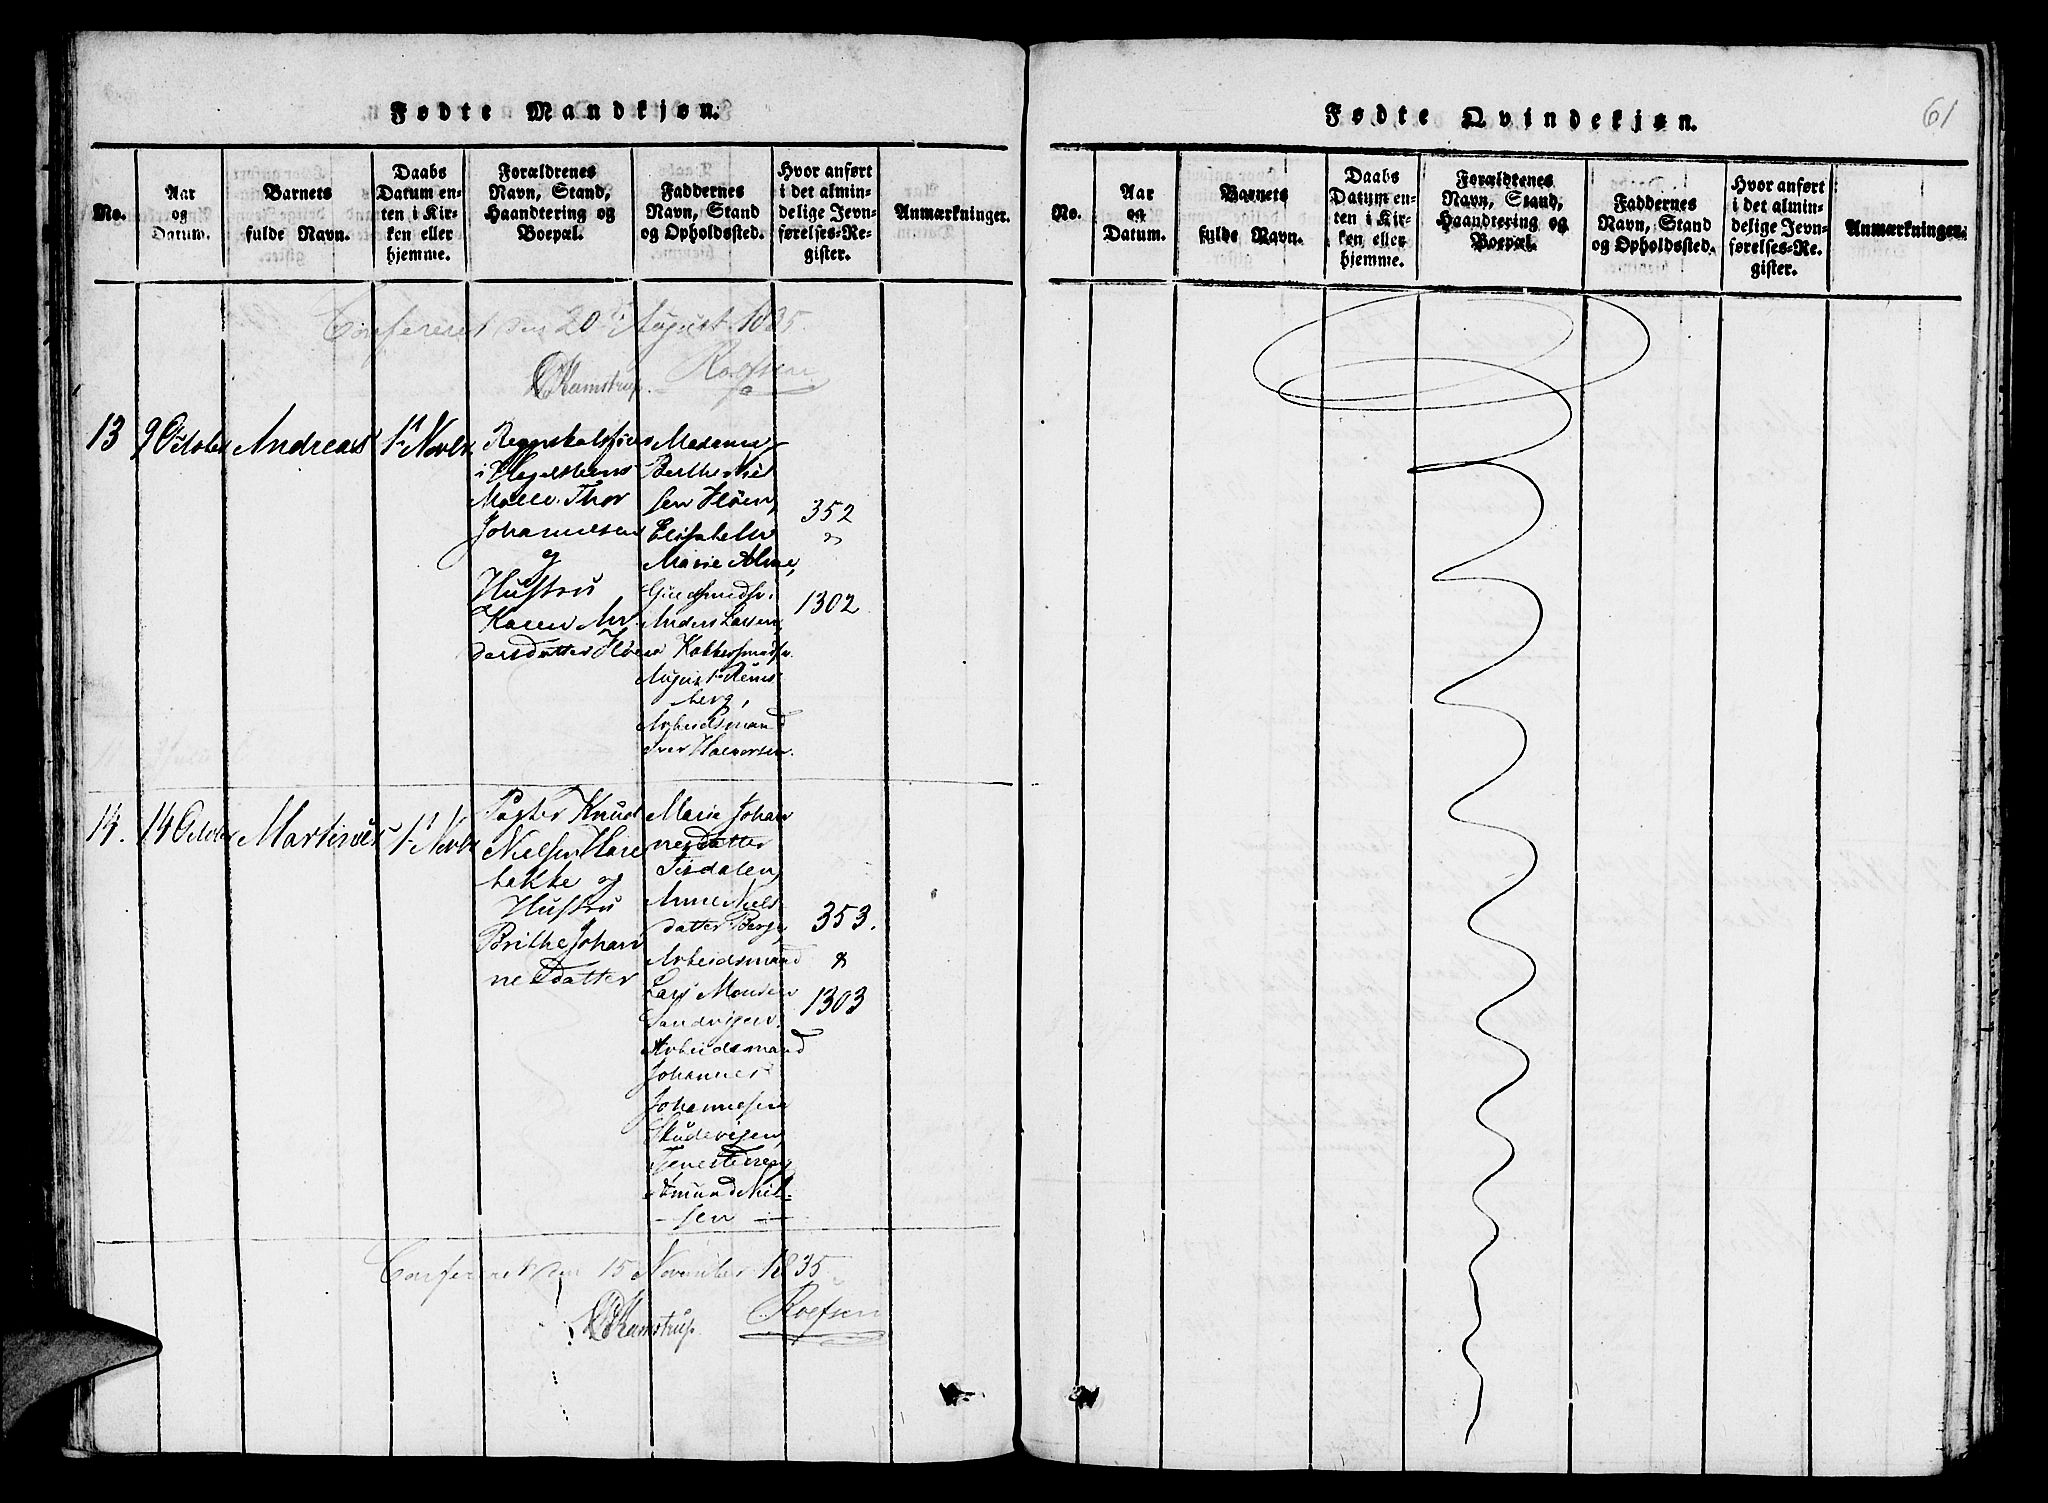 Fødte Mandkjøn.
No.
Aar
og
Datum.
Barnets
fulde Navn.
Daabs
Datum en-
ten i Kir-
ken eller
hjemme.
Forældrenes
Navn, Stand,
Haandtering og
Boepæl.
Faddernes
Navn, Stand
og Opholdssted.
Hvor anført
i det almin-
delige Jevn-
førelses-Re-
gister.
Anmærkninger.
Confereret den 20 August 1835.
Kamstrup. Roefsen
13
9 October
Andreas
1ste Novbr.
i Hegelsteens
Thor
Johannesen
og
Hustru
Karen An-
dersdatter Fløen
Madame
Berthe Niel
sen Fløen,
Elisabeth
Marie Alme,
Guldsmedsv.
Anders Larsen,
Kobbersmedsv.
August Rems
berg,
Arbeidsmand
Iver Halvorsen.
352
&
1302
14.
14 October
Martinus
1ste Novbr.
Pagter Knud
Nielsen Hare
bakke og
Hustru
Brithe Johan
nesdatter
Marie Johan
nesdatter
Tisdalen,
Anne Niels
datter Berge,
Arbeidsmand
Lars Monsen
Sandvigen.
Arbeidsmand
Johannes
Johannesen
Skudevigen,
Tjenestedreng
Amund Niel-
- sen -
353.
&
1303
Confereret den 15 November 1835.
Kamstrup. Roefsen
61
Fødte Qvindekjøn.
No.
Aar
og
Datum.
Barnets
fulde Navn.
Daabs
Datum en-
ten i Kir-
ken eller
hjemme.
Forældrenes
Navn, Stand,
Haandtering og
Boepæl.
Faddernes
Navn, Stand
og Opholdssted.
Hvor anført
i det almin-
delige Jevn-
førelses-Re-
gister.
Anmærkninger.